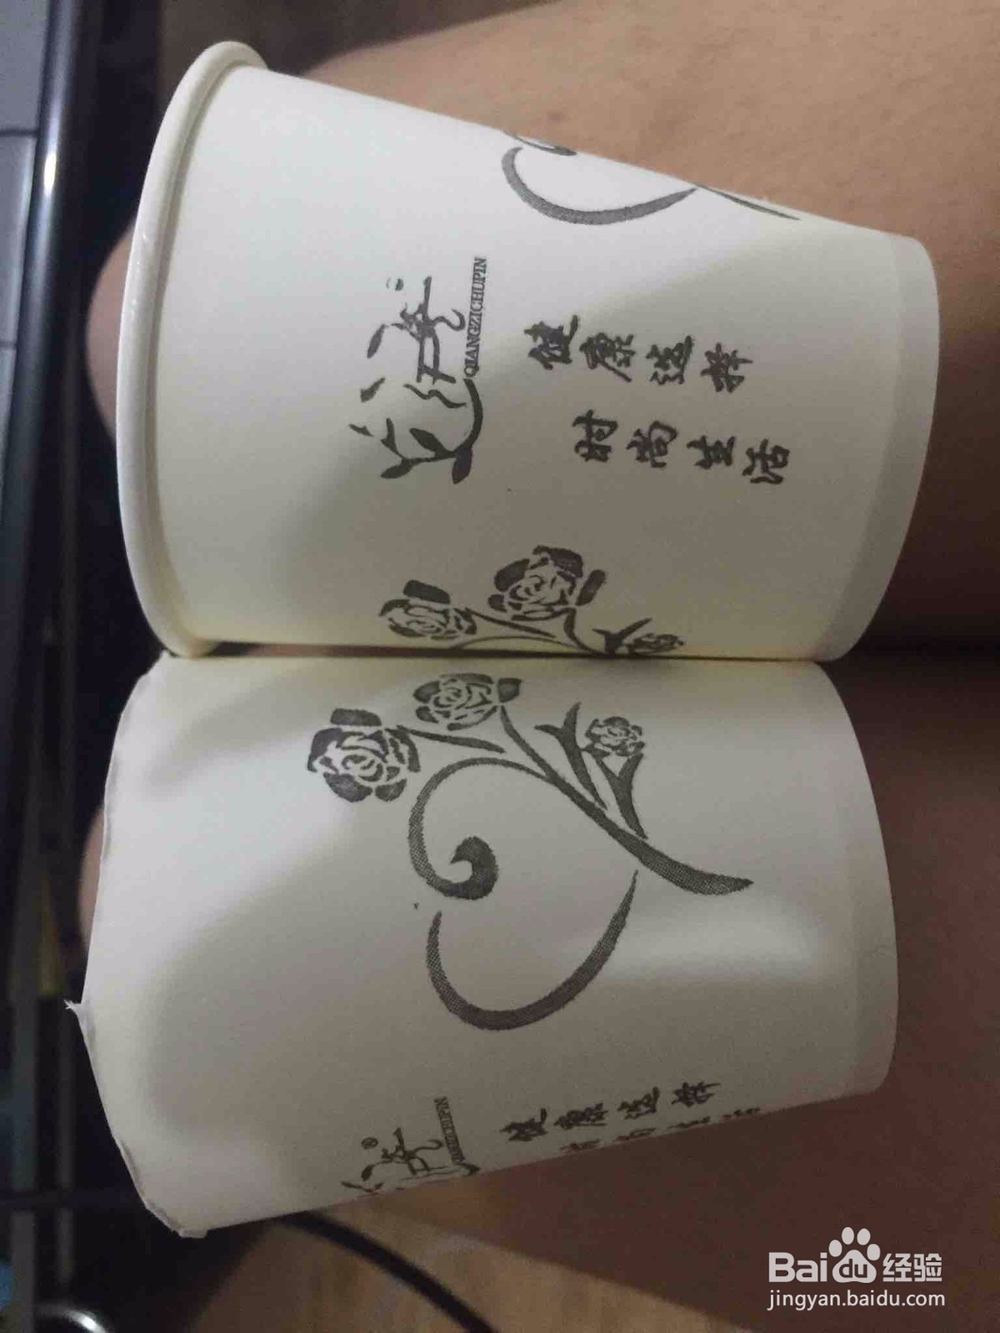 QIANGZICHUPIN
健康选择
时尚生活
®
健康选择
Baidu 经验
jingyan.baidu.com